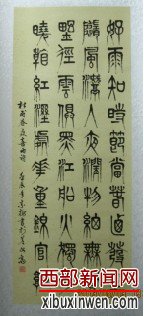 好雨知時節當春乃發
隨風潛入夜潤物細無
野徑雲俱黑江船火獨
曉看紅濕處花重錦官
杜甫春夜喜雨詩
西部新闻网
www.xibuxinwen.com